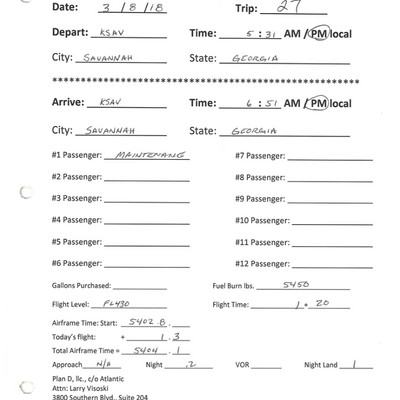 Date: 3 / 8 / 18 Trip: 27
Depart: KSAV Time: 5 : 31 AM / PM local
City: SAVANNAH State: GEORGIA
************************************************************
Arrive: KSAV Time: 6 : 51 AM / PM local
City: SAVANNAH State: GEORGIA
#1 Passenger: MAINTENANE #7 Passenger:
#2 Passenger: #8 Passenger:
#3 Passenger: #9 Passenger:
#4 Passenger: #10 Passenger:
#5 Passenger: #11 Passenger:
#6 Passenger: #12 Passenger:
Gallons Purchased: Fuel Burn lbs. 5450
Flight Level: FL430 Flight Time: 1 + 20
Airframe Time: Start: 5402.8
Today's flight: + 1.3
Total Airframe Time = 5404.1
Approach N/A Night .2 VOR Night Land 1
Plan D, llc., c/o Atlantic
Attn: Larry Visoski
3800 Southern Blvd., Suite 204